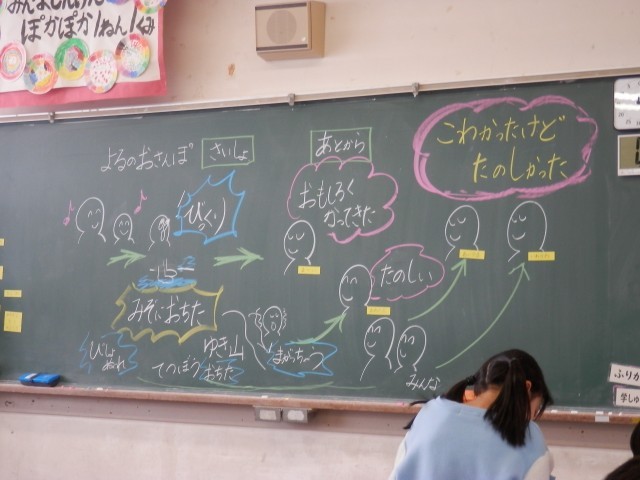 みんな
ぽかぽか1ねん1くみ
よるのおさんぽ
さいしょ
あとから
こわかったけど
たのしかった
びっくり
おもしろく
なってきた
たのしい
みぞにおちた
びしょ
ぬれ
てつぼう
ゆき山
おちた
まがらちょうつ
みんな
ふりか
学しゅ